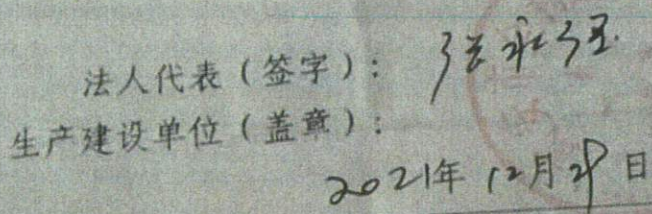 法人代表（签字）：张永强
生产建设单位（盖章）：
2021年12月29日